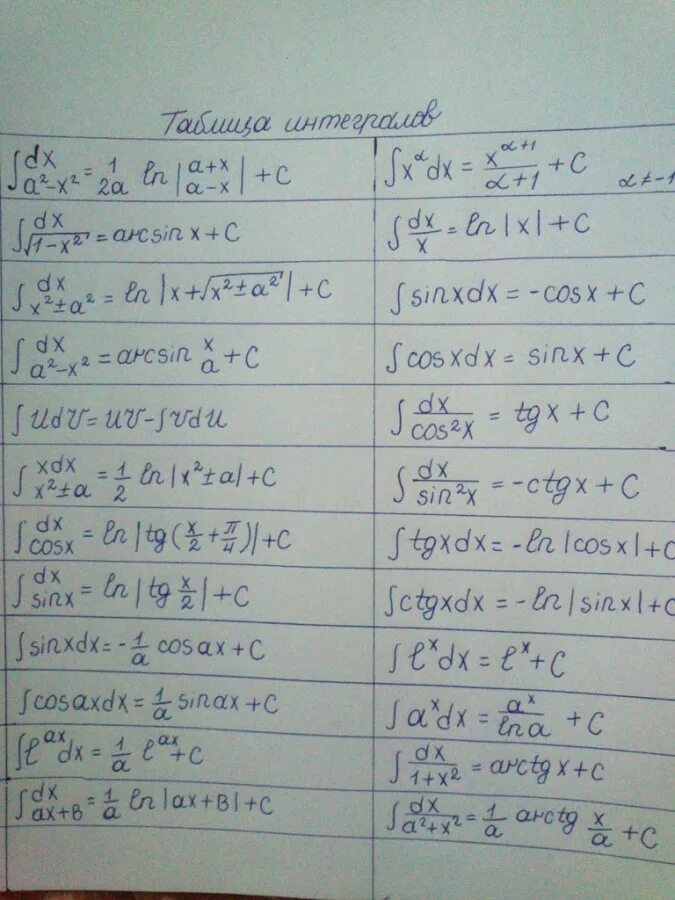 Таблица интегралов
∫ dx / a²-x² = 1/2a ln |a+x / a-x| + C
∫x^α dx = x^(α+1) / α+1 + C α≠-1
∫ dx / √1-x² = arcsin x + C
∫ dx / x = ln |x| + C
∫ dx / x²±a² = ln |x+√x²±a²| + C
∫ sinxdx = -cosx + C
∫ dx / a²-x² = arcsin x/a + C
∫ cosxdx = sinx + C
∫ UdV = UV - ∫VdU
∫ dx / cos²x = tgx + C
∫ xdx / x²±a = 1/2 ln |x²±a| + C
∫ dx / sin²x = -ctgx + C
∫ dx / cosx = ln |tg(x/2 + π/4)| + C
∫ tgxdx = -ln |cosx| + C
∫ dx / sinx = ln |tg x/2| + C
∫ctgxdx = -ln |sinx| + C
∫ sinxdx = -1/a cosax + C
∫ ℓ^x dx = ℓ^x + C
∫ cosaxdx = 1/a sinax + C
∫ a^x dx = a^x / lna + C
∫ℓ^ax dx = 1/a ℓ^ax + C
∫ dx / 1+x² = arctgx + C
∫ dx / ax+B = 1/a ln |ax+B| + C
∫ dx / a²+x² = 1/a arctg x/a + C